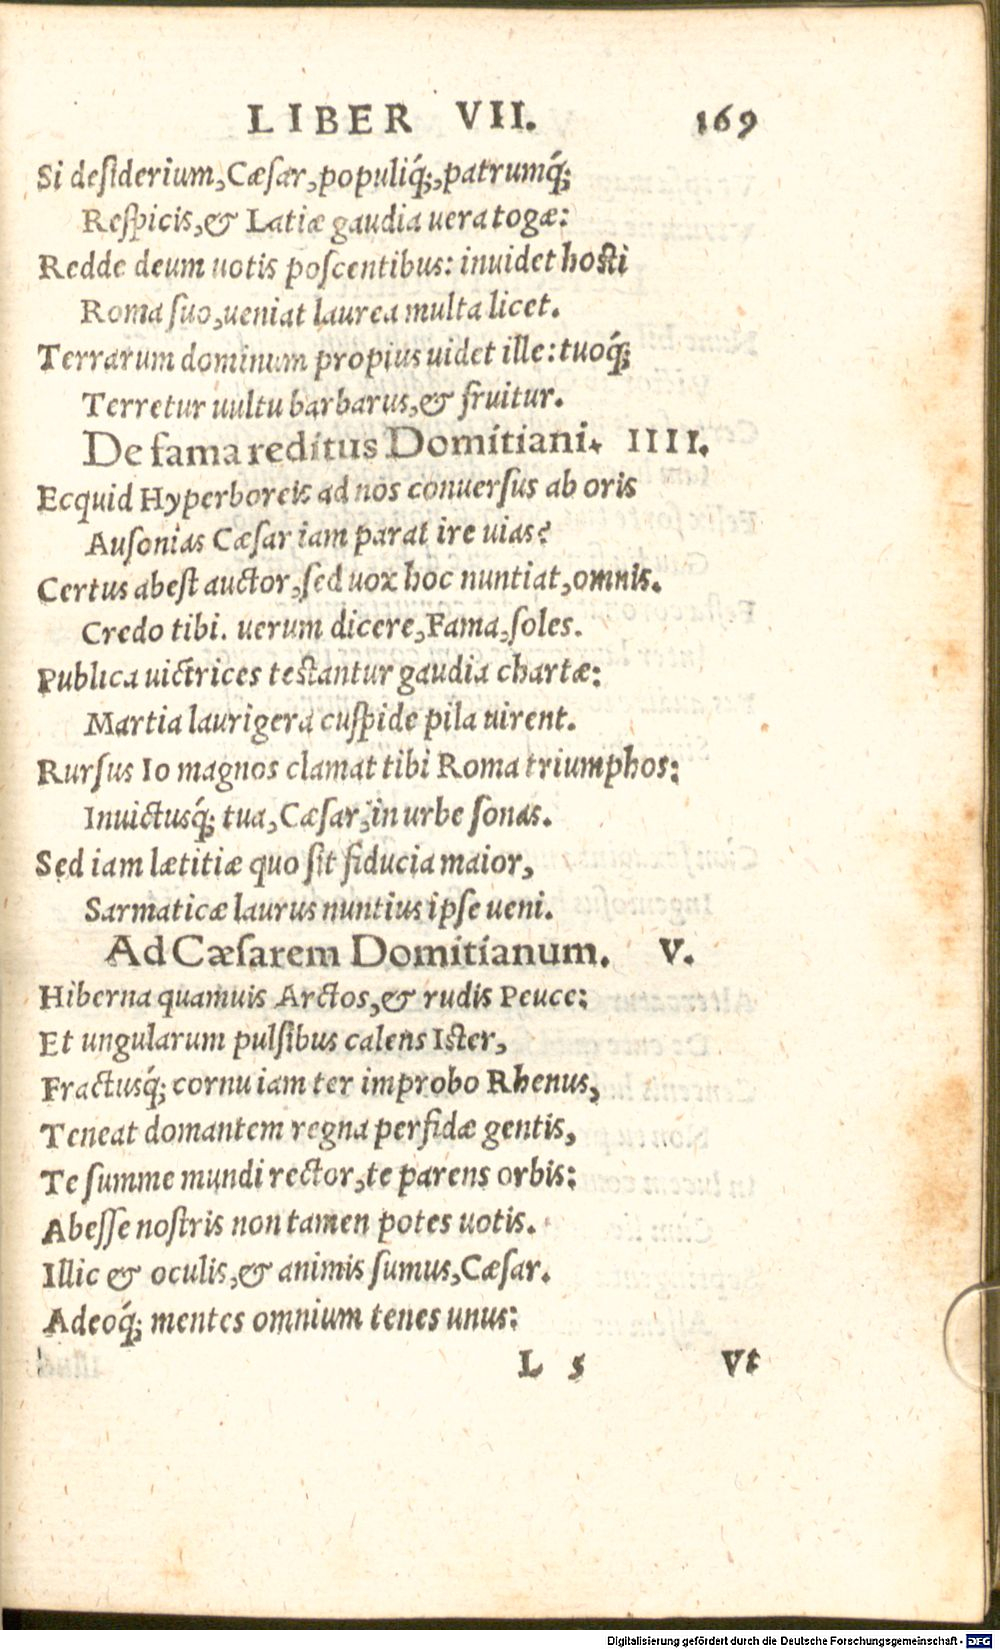 LIBER VII. 169
Si desiderium, Cæsar, populiq́;, patrumq́;
Respicis, & Latiæ gaudia uera togæ:
Redde deum uotis poscentibus: inuidet hosti
Roma suo, ueniat laurea multa licet.
Terrarum dominum propius uidet ille: tuoq́;
Terretur uultu barbarus, & fruitur.
De fama reditus Domitiani. IIII.
Ecquid Hyperboreis ad nos conuersus ab oris
Ausonias Cæsar iam parat ire uias?
Certus abest auctor, sed uox hoc nuntiat, omnis.
Credo tibi. uerum dicere, Fama, soles.
Publica uictrices testantur gaudia chartæ:
Martia laurigera cuspide pila uirent.
Rursus Io magnos clamat tibi Roma triumphos:
Inuictusq́; tua, Cæsar, in urbe sonas.
Sed iam lætitiæ quo sit fiducia maior,
Sarmaticæ laurus nuntius ipse ueni.
Ad Cæsarem Domitianum. V.
Hiberna quamuis Arctos, & rudis Peuce:
Et ungularum pulsibus calens Ister,
Fractusq́; cornu iam ter improbo Rhenus,
Teneat domantem regna perfidæ gentis,
Te summe mundi rector, te parens orbis:
Abesse nostris non tamen potes uotis.
Illic & oculis, & animis sumus, Cæsar.
Adeoq́; mentes omnium tenes unus:
L 5 Vt
Digitalisierung gefördert durch die Deutsche Forschungsgemeinschaft - DFG